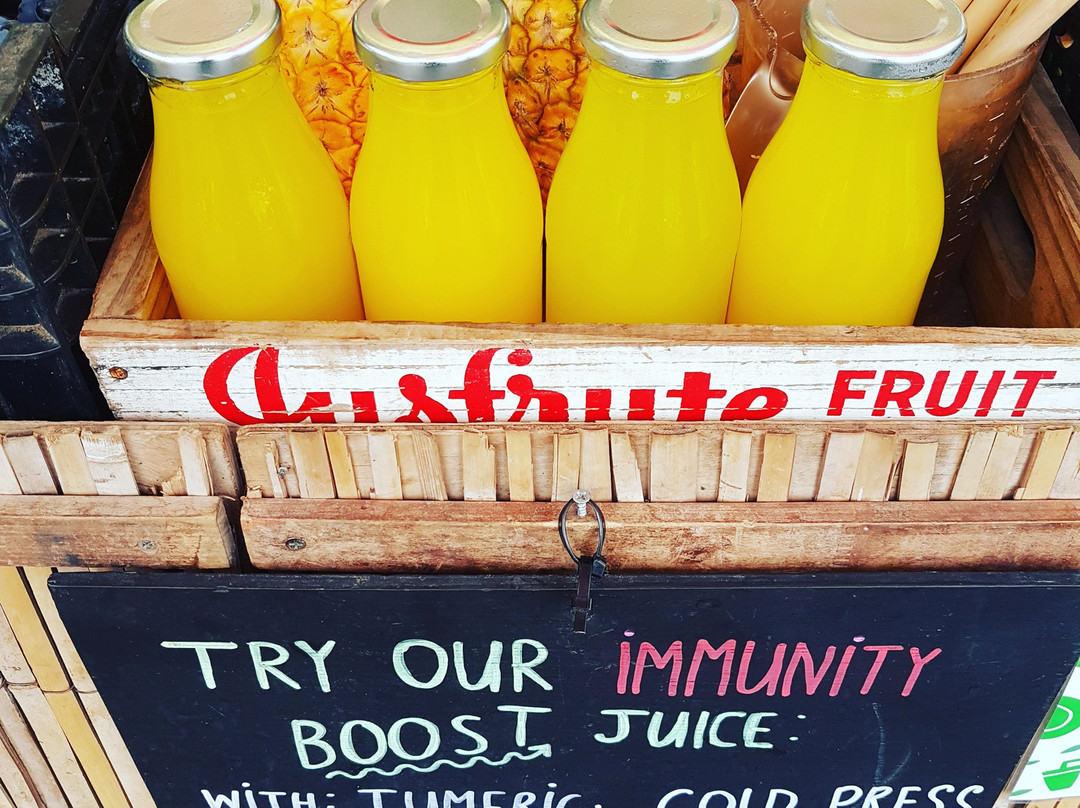 Jusfrute FRUIT
TRY OUR iMMUNiTY
BOOST JUICE:
WiTH: TUMERIC, COLD PRESS